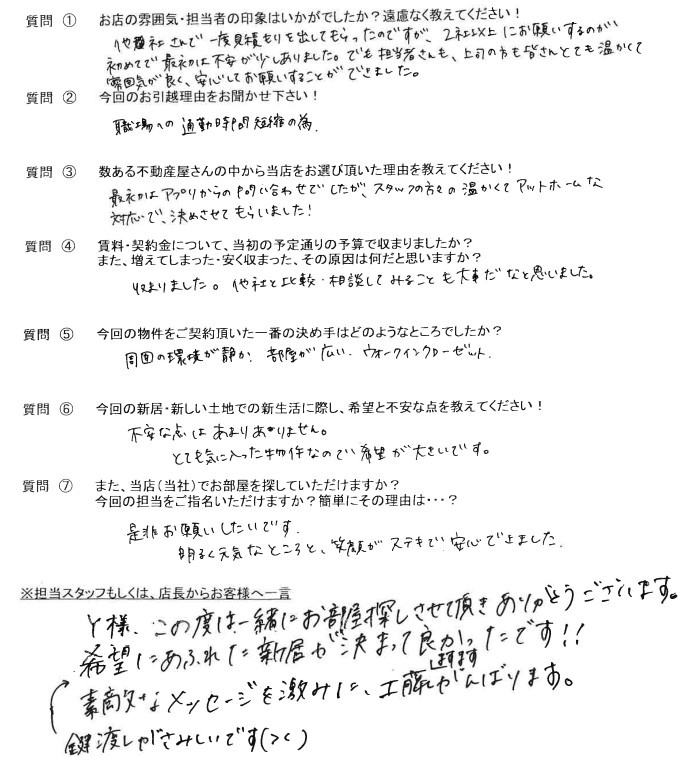 質問 ① お店の雰囲気・担当者の印象はいかがでしたか？遠慮なく教えてください！
他社さんで一度見積もりを出してもらったのですが、2社以上にお願いするのが
初めてで最初は不安が少しありました。でも担当者さんも、上司の方も皆さんとても温かくて
雰囲気が良く、安心してお願いすることができました。
質問 ② 今回のお引越理由をお聞かせ下さい！
職場への通勤時間短縮の為.
質問 ③ 数ある不動産屋さんの中から当店をお選び頂いた理由を教えてください！
最初はアプリからの問い合わせでしたが、スタッフの方々の温かくてアットホームな
対応で、決めさせてもらいました!
質問 ④ 賃料・契約金について、当初の予定通りの予算で収まりましたか？
また、増えてしまった・安く収まった、その原因は何だと思いますか？
収まりました。他社と比較・相談してみることも大事だなと思いました。
質問 ⑤ 今回の物件をご契約頂いた一番の決め手はどのようなところでしたか？
周囲の環境が静か. 部屋が広い. ウォークインクローゼット.
質問 ⑥ 今回の新居・新しい土地での新生活に際し、希望と不安な点を教えてください！
不安な点はあまりありません。
とても気に入った物件なので希望が大きいです。
質問 ⑦ また、当店（当社）でお部屋を探していただけますか？
今回の担当をご指名いただけますか？簡単にその理由は・・・？
是非お願いしたいです.
明るく元気なところと、笑顔がステキで安心できました.
※担当スタッフもしくは、店長からお客様へ一言
Y様、この度は一緒にお部屋探しさせて頂きありがとうございます。
希望にあふれた新居が決まって良かったです!!
素敵なメッセージを激みに、工藤ますますがんばります。
鍵渡しがさみしいです(><)